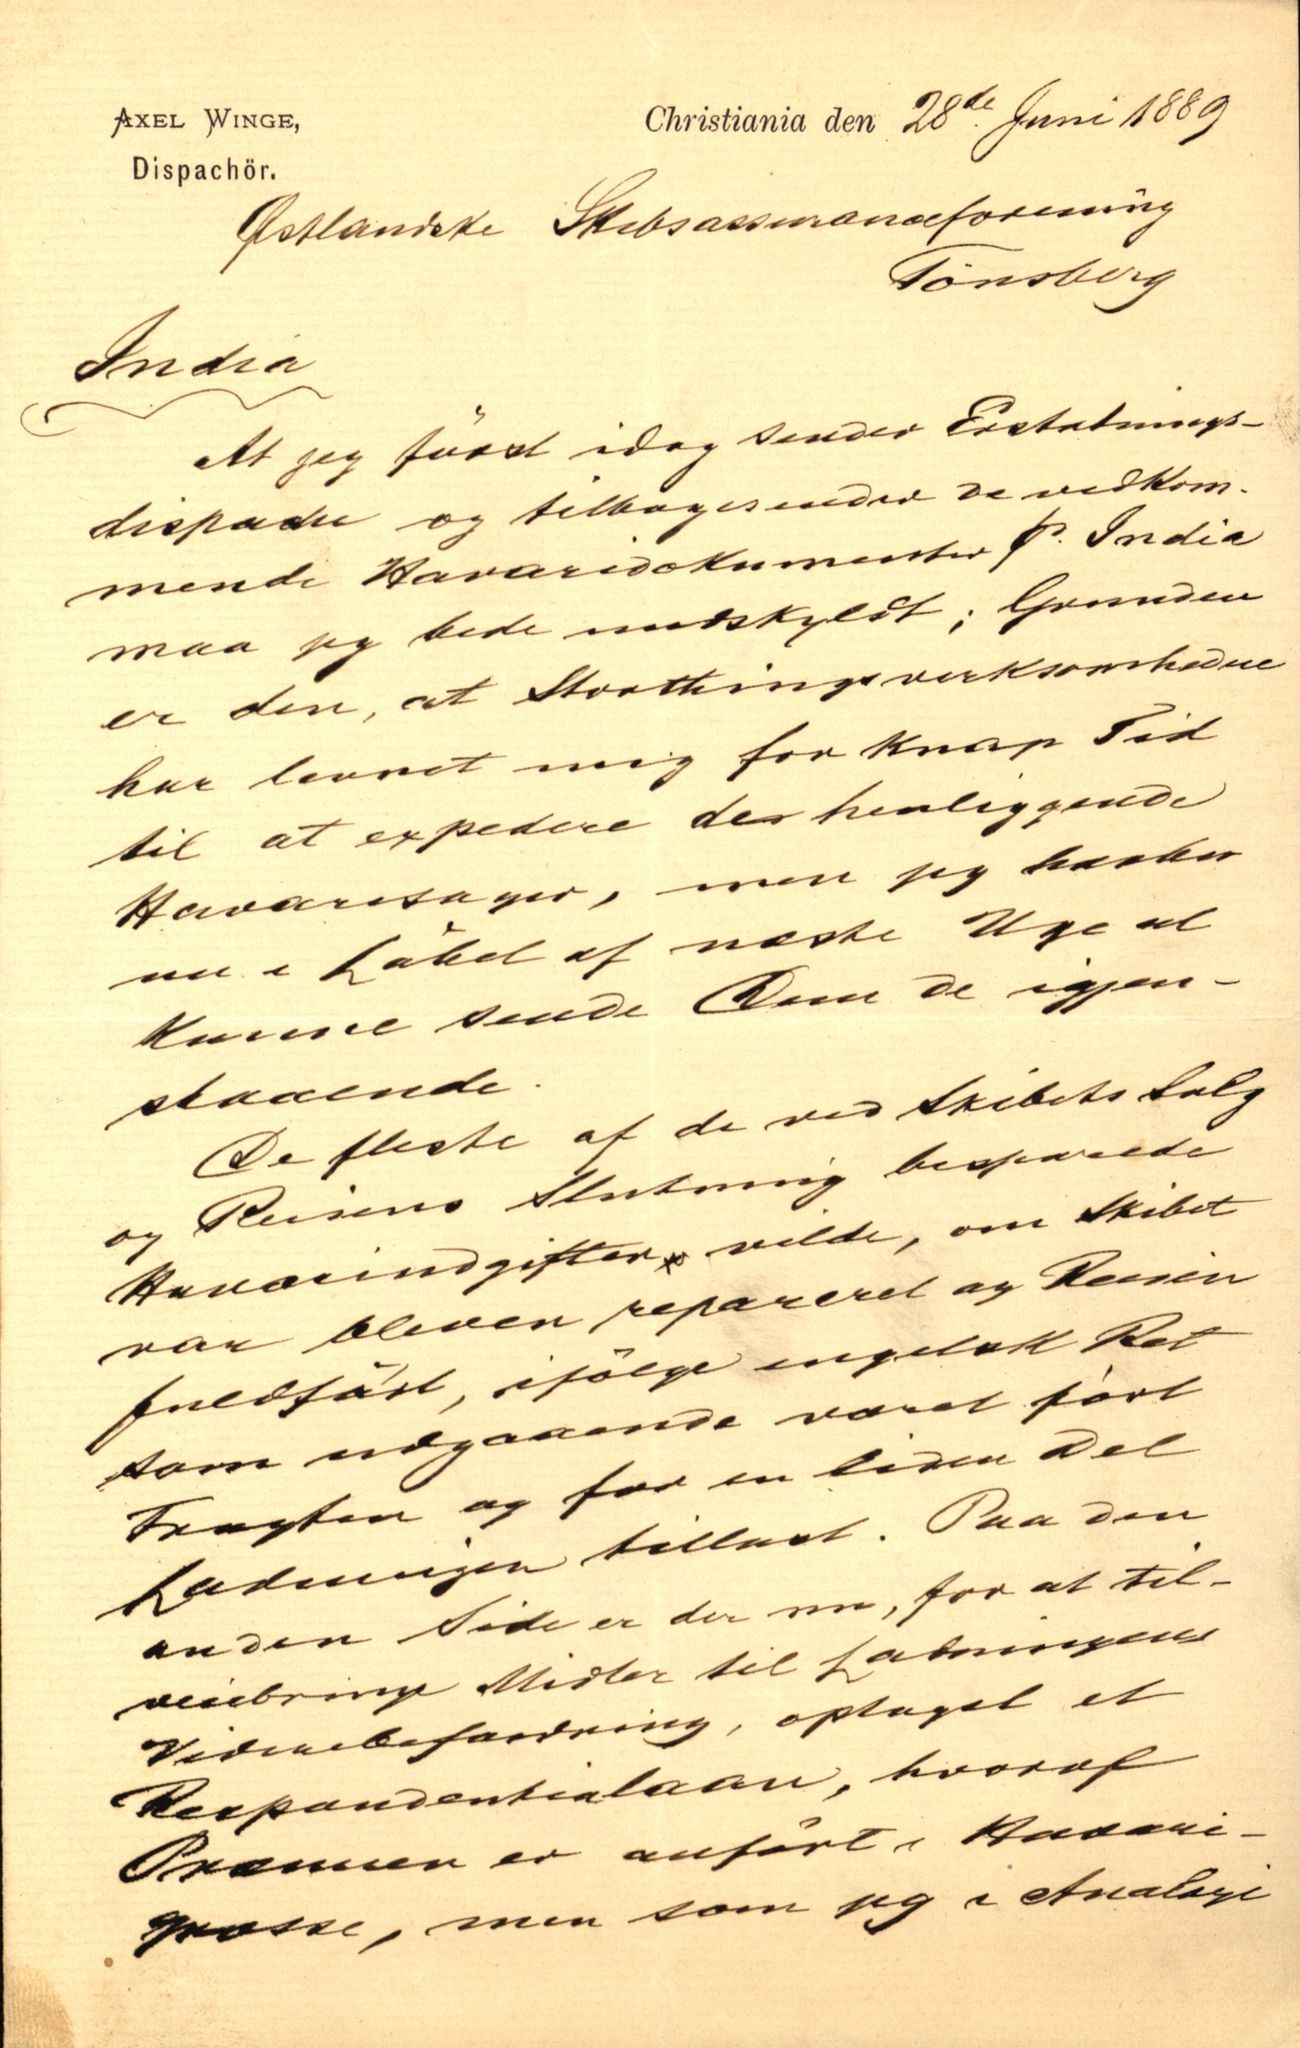 AXEL WINGE,
Dispachör.
Christiania den 28de Juni 1889
Østlandske Skibsassuranceforening
Tönsberg
India
At jeg först idag sender Erstatnings-
dispache og tilbagesender de vedkom-
mende Havaridokumenter p. India
maa jeg bede undskyldt; Grunden
er den, at Storthingsvirksomheden
har levnet mig for knap Tid
til at expedere de henliggende
Havarisager, men jeg haaber
nu i Löbet af næste Uge at
kunne sende Dem de igjen-
staaende.
De fleste af de ved Skibets Salg
og Reisens Slutning besparede
Havariudgifter vilde, om Skibet
var bleven repareret og Reisen
fuldfört, ifölge engelsk Ret
som udgaaende været fört
Fragten og for en liden Del
Ladningen tillast. Paa den
anden Side er der nu, for at til-
veiebringe Midler til Ladningens
Viderebefordring, optaget et
Respondentialaan, hvoraf
Præmien er anfört i Havari-
grosse, men som jeg i Analogi